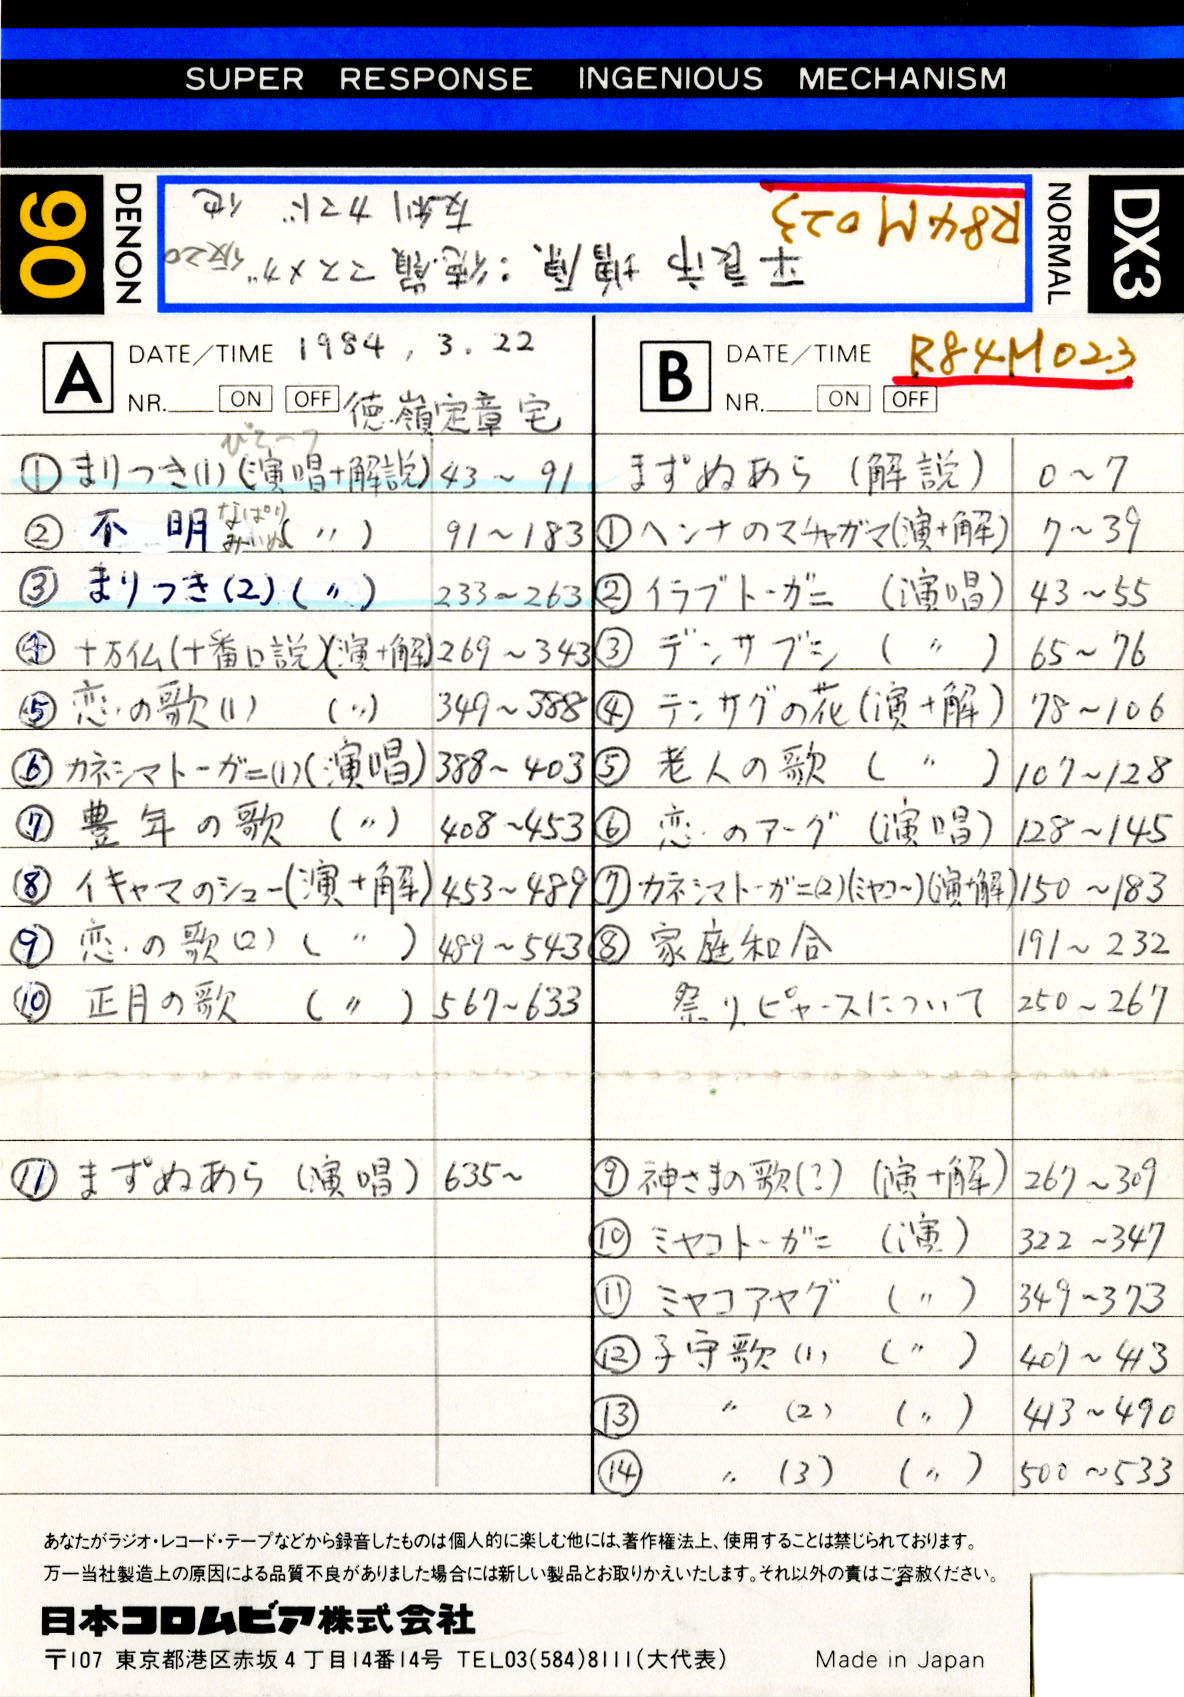 SUPER RESPONSE INGENIOUS MECHANISM
90
DENON
平良市増原:徳嶺マスメガ 仮20
友利カマド 他
R84M023
NORMAL
DX3
A
DATE/TIME 1984, 3. 22
NR. ON OFF 徳嶺定章宅
B
DATE/TIME R84M023
NR. ON OFF
① まりつき(1) (演唱+解説) 43~91
② 不明 なぱり みいぬ (〃) 91~183
③ まりつき(2) (〃) 233~263
④ 十万仏(十番口説)(演+解) 269~343
⑤ 恋の歌(1) (〃) 349~388
⑥ カネシマトーガニ(1)(演唱) 388~403
⑦ 豊年の歌 (〃) 408~453
⑧ イキャマのシュー(演+解) 453~489
⑨ 恋の歌(2) (〃) 489~543
⑩ 正月の歌 (〃) 567~633
⑪ まずぬあら (演唱) 635~
まずぬあら (解説) 0~7
① ヘンナのマチャガマ(演+解) 7~39
② イラブトーガニ (演唱) 43~55
③ デンサブシ (〃) 65~76
④ テンサグの花(演+解) 78~106
⑤ 老人の歌 (〃) 107~128
⑥ 恋のアーグ (演唱) 128~145
⑦ カネシマトーガニ(2)(ミヤコ~)(演+解) 150~183
⑧ 家庭和合 191~232
祭り、ピャースについて 250~267
⑨ 神さまの歌(?) (演+解) 267~309
⑩ ミヤコトーガニ (演) 322~347
⑪ ミヤコアヤグ (〃) 349~373
⑫ 子守歌(1) (〃) 407~413
⑬ 〃 (2) (〃) 413~490
⑭ 〃 (3) (〃) 500~533
あなたがラジオ・レコード・テープなどから録音したものは個人的に楽しむ他には、著作権法上、使用することは禁じられております。
万一当社製造上の原因による品質不良がありました場合には新しい製品とお取りかえいたします。それ以外の責はご容赦ください。
日本コロムビア株式会社
〒107 東京都港区赤坂4丁目14番14号 TEL03(584)8111(大代表) Made in Japan